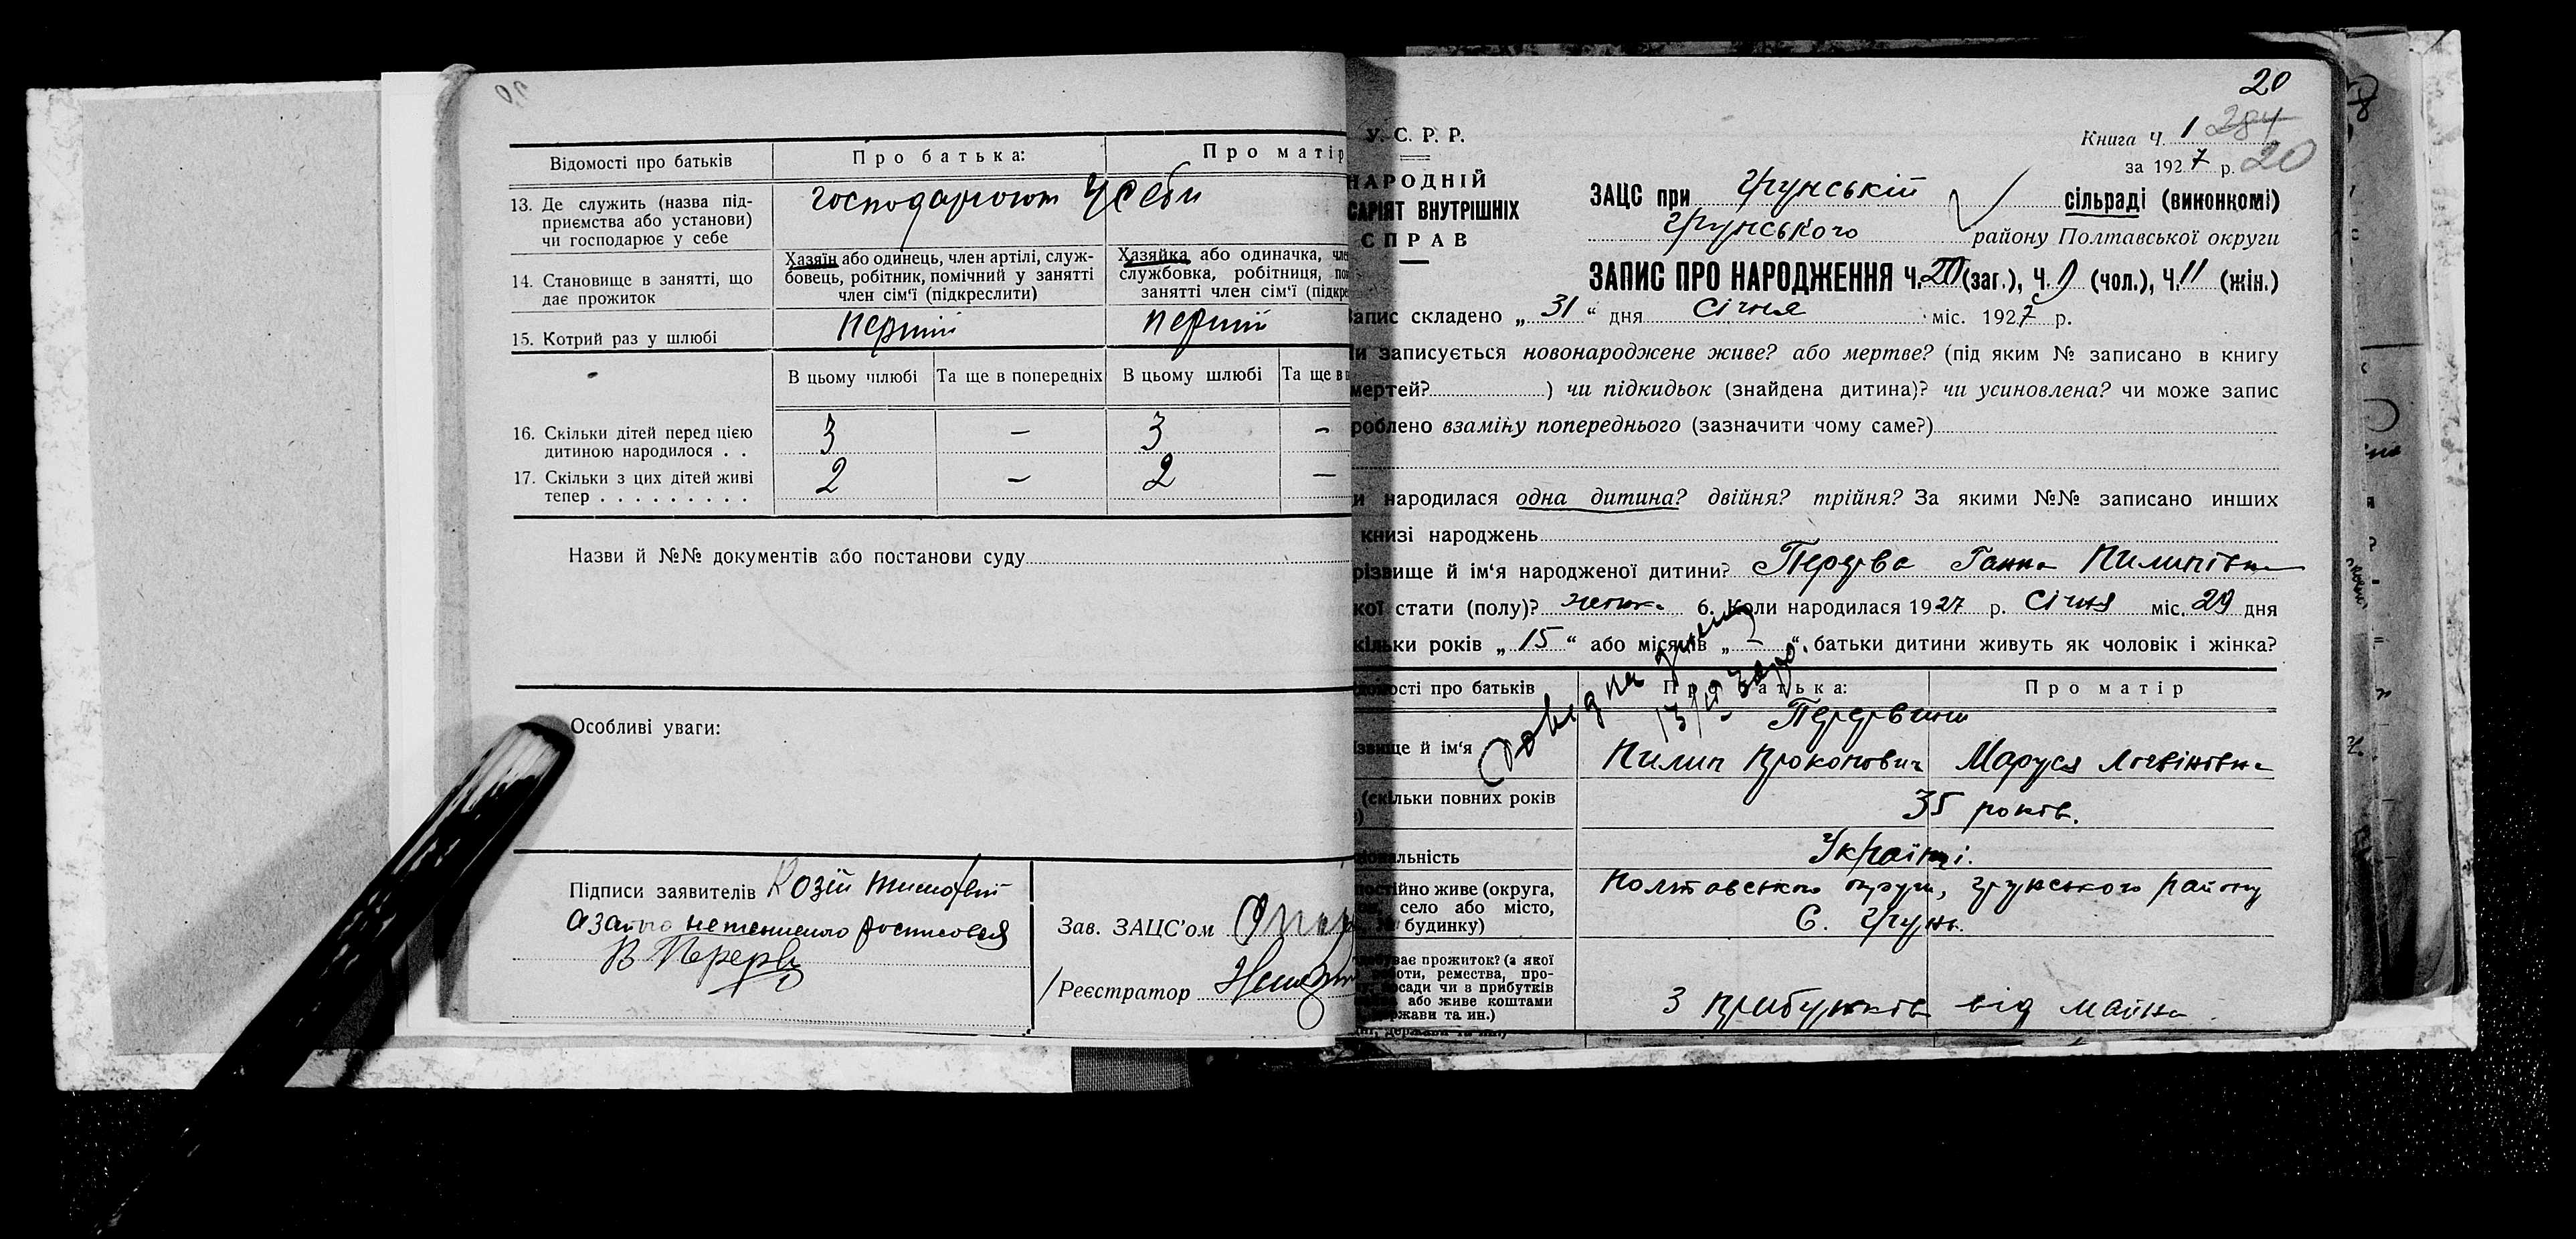 Відомості про батьків
Про батька:
Про матір
13. Де служить (назва під-
приємства або установи)
чи господарює у себе
господарюют у себи
14. Становище в занятті, що
дає прожиток
Хазяїн або одинець, член артілі, служ-
бовець, робітник, помічний у занятті
член сім'ї (підкреслити)
Хазяйка або одиначка, чле
службовка, робітниця, по
занятті член сім'ї (підкре
15. Котрий раз у шлюбі
перший
перший
В цьому шлюбі
Та ще в попередніх
В цьому шлюбі
Та ще в
16. Скільки дітей перед цією
дитиною народилося . .
3 – 3 –
17. Скільки з цих дітей живі
тепер . . . . . . . . .
2 – 2 –
Назви й №№ документів або постанови суду
Особливі уваги:
Підписи заявителів Козій
а за його неписьменого росписовся
В Перерва
Зав. ЗАЦС'ом
Реєстратор
20
У. С. Р. Р.
НАРОДНІЙ
САРІЯТ ВНУТРІШНІХ
СПРАВ
Книга Ч. 1 284
за 1927 р. 20
ЗАЦС при Грунській сільраді (виконкомі)
Грунського району Полтавської округи
ЗАПИС ПРО НАРОДЖЕННЯ Ч. 20 (заг.), Ч. 9 (чол.), Ч. 11 (жін.)
Запис складено „ 31 “ дня Січня міс. 1927 р.
и записується новонароджене живе? або мертве? (під яким № записано в книгу
мертей? ) чи підкидьок (знайдена дитина)? чи усиновлена? чи може запис
роблено взаміну попереднього (зазначити чому саме?)
и народилася одна дитина? двійня? трійня? За якими №№ записано инших
книзі народжень
різвище й ім'я народженої дитини? Перерва Ганна Пилипівна
кої стати (полу)? жіноч. 6. Коли народилася 1927 р. Січня міс. 29 дня
кільки років „ 15 “ або місяців „ – “ батьки дитини живуть як чоловік і жінка?
омості про батьків
Про батька:
Про матір
ізвище й ім'я
Перерви
Пилип Прокопович
Маруся Логвіновна
(скільки повних років
35 років.
ональність
Українці.
постійно живе (округа,
село або місто,
будинку)
Полтавського округи, Грунського району
С. Грунь.
ває прожиток? (з якої
оти, ремества, про-
сади чи з прибутків
або живе коштами
ржави та ин.)
З прибутків від майна